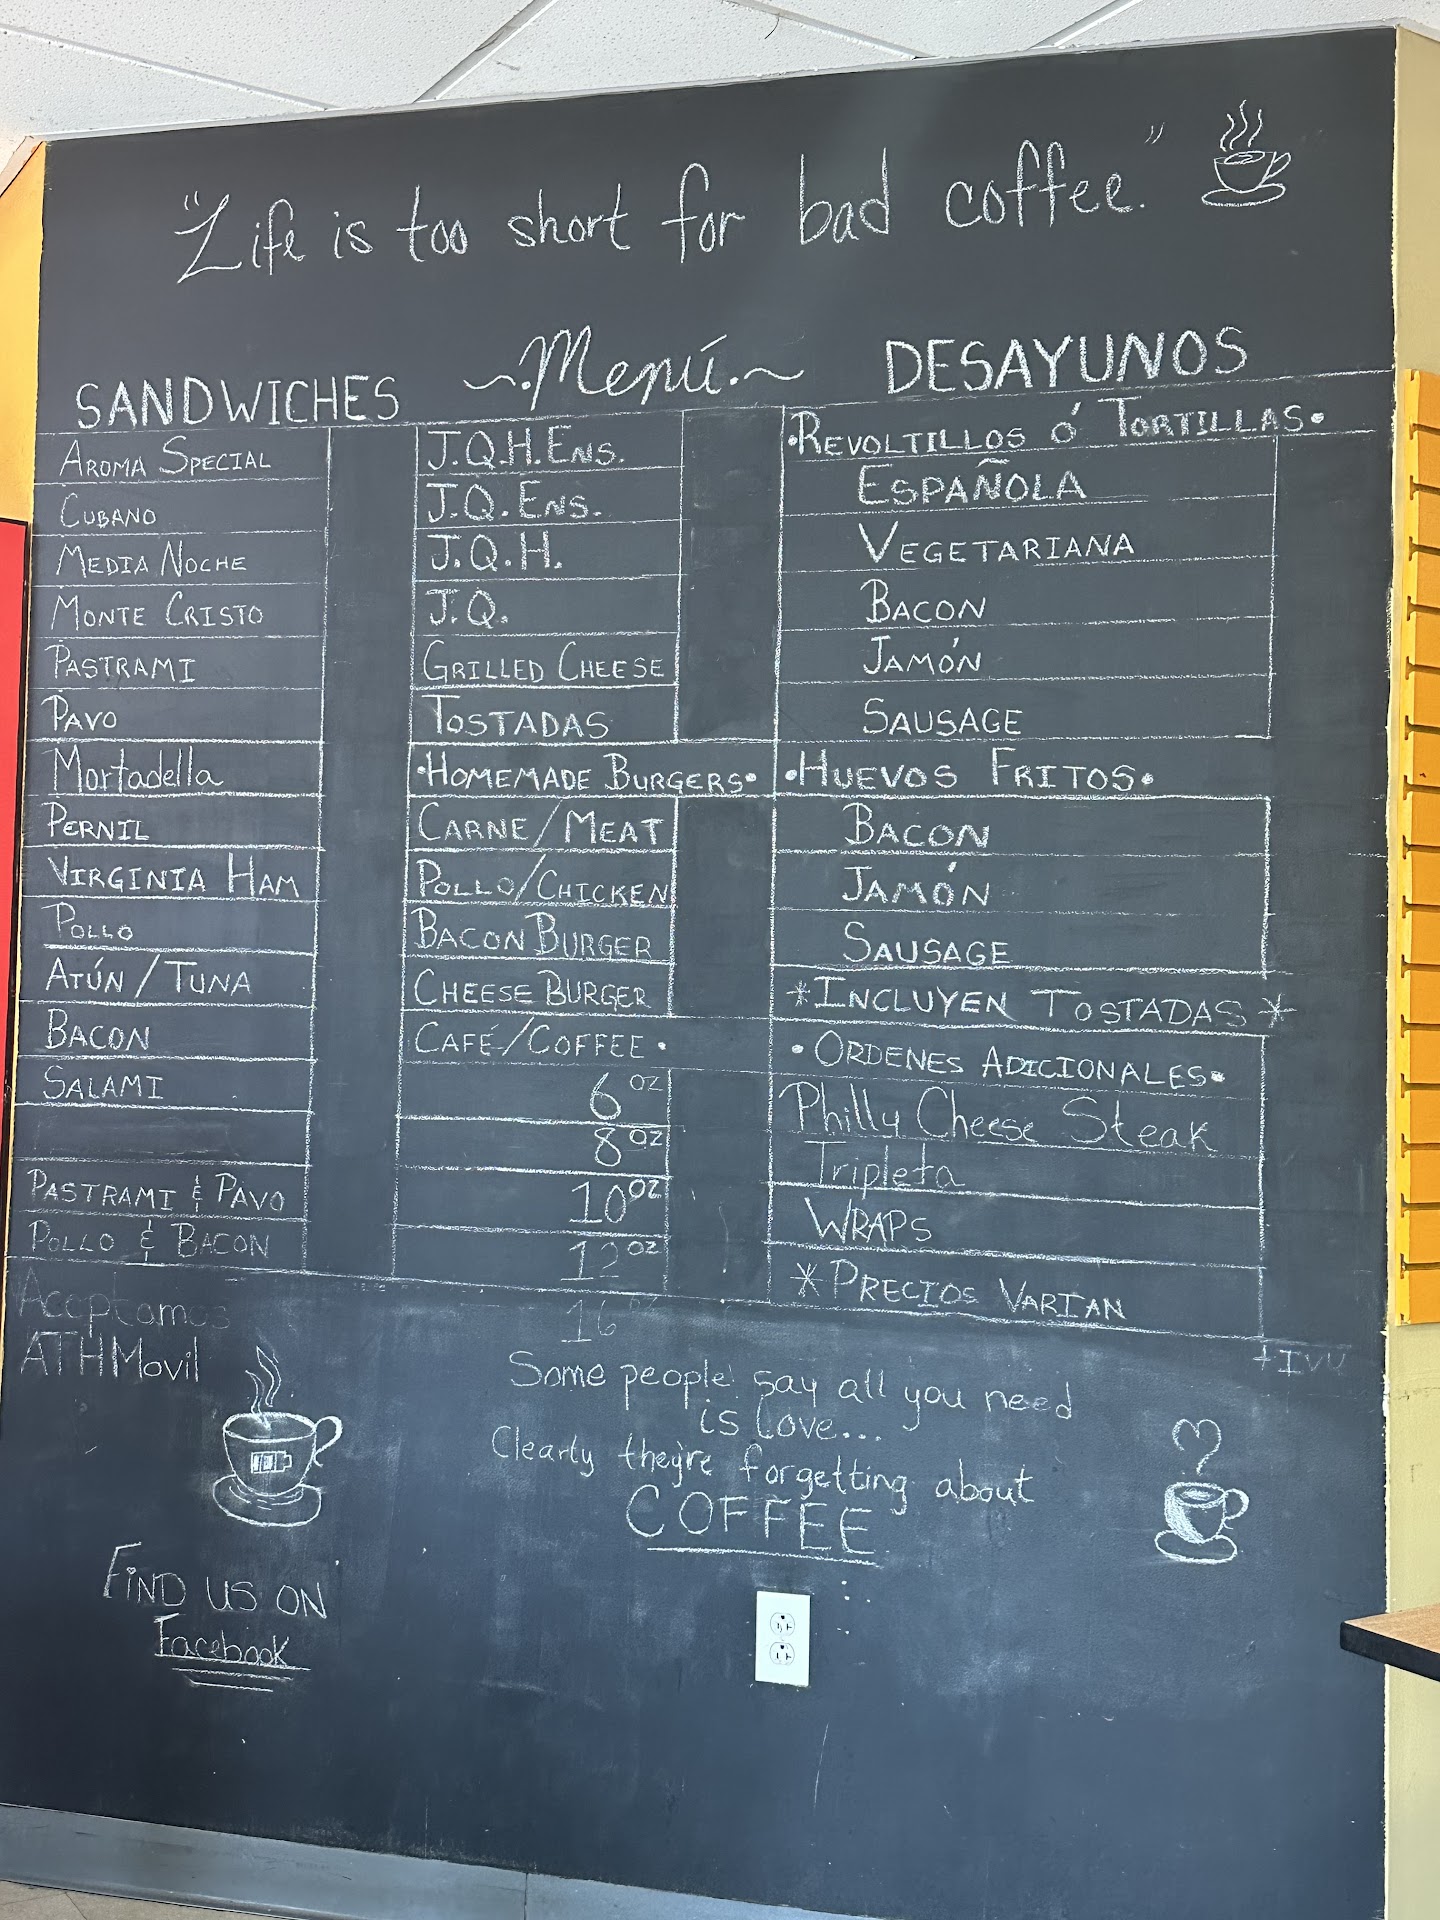 "Life is too short for bad coffee."
~.Menú.~
SANDWICHES
AROMA SPECIAL
CUBANO
MEDIA NOCHE
MONTE CRISTO
PASTRAMI
PAVO
Mortadella
PERNIL
VIRGINIA HAM
POLLO
ATÚN / TUNA
BACON
SALAMI
PASTRAMI & PAVO
POLLO & BACON
Aceptamos
ATHMovil
J.Q.H.ENS.
J.Q.ENS.
J.Q.H.
J.Q.
GRILLED CHEESE
TOSTADAS
•HOMEMADE BURGERS•
CARNE/MEAT
POLLO/CHICKEN
BACON BURGER
CHEESE BURGER
CAFÉ/COFFEE •
6 oz
8 oz
10 oz
12 oz
16 oz
DESAYUNOS
•REVOLTILLOS ó TORTILLAS•
ESPAÑOLA
VEGETARIANA
BACON
JAMÓN
SAUSAGE
•HUEVOS FRITOS•
BACON
JAMÓN
SAUSAGE
*INCLUYEN TOSTADAS*
•ORDENES ADICIONALES•
Philly Cheese Steak
Tripleta
WRAPS
*PRECIOS VARIAN
+IVU
Some people say all you need
is love...
Clearly they're forgetting about
COFFEE
FIND US ON
Facebook